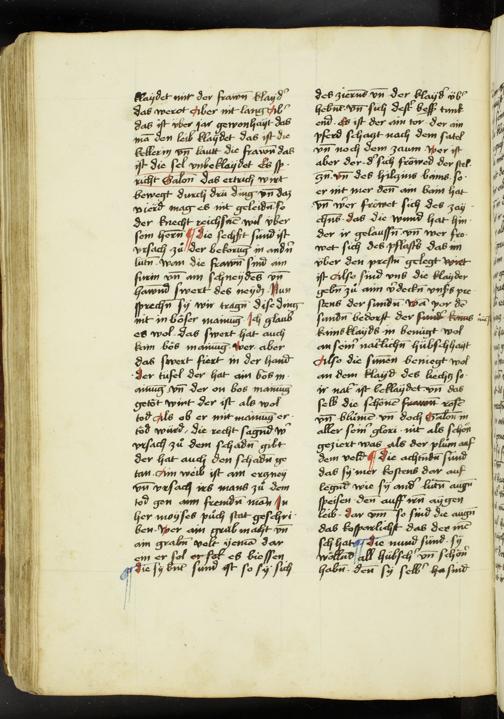 klaydet mit der frawen klayd
das werot Aber nit lang Al
das ist vber jar gewonhayt das
man den leib klaydet das ist die
kellerin vn lautt die frawn das
ist die sel vnbeklaydet Es sp
richt Salon das ertrich wirt
bewegt durch dru ding vn daz
vierd mag es nit geliden so
der knecht reichsnet wol vber
sein hern Die sechst sund ist
vrsach zu der bekorug in andn
lutn wan die frawn sind ain
furin vn am schneydes vn
hawend swert des neyds Nun
sprechn sy wir tragn dise ding
nit in boser mainug Ich glaub
es wol das swert hat auch
kain bos mainug wer aber
das swert fiert in der hand
der tufel der hat ain bos m
ainug vn der on bos mainug
getot wirt der ist als wol
tod Als ob er mit mainug er
tod wurd die recht sagnd
vrsach zu dem schadn gibt
der hat auch den schadn ge
tan Ain weib ist am erczney
vn vrsach irs mans zu dem
tod gen aim fremdn man In
her moyses puch stat geschri
ben wer ain grub macht vn
ain grabn wolt yemand dar
ein er sol es biessen
die sybent sund ist so sy sich
des zierns vn der klayd vb
hebn vn sich dest besser dunk
end Es ist der ain tor der ain
pferd schagt nach dem satel
vn noch dem zaum wer ist
aber der d sich frowed der stel
zn vn des hilzins bains so
er nit mer den ain bain hat
vn wer frowet sich des zay
chns das die wund hat hin
der ir gelassn vn wer fro
wet sich des pflasts das im
vber den presten gelegt wirt
ist Also sind vns die klayder
gebn zu aim vdeckn vnss pre
stens der sundn wa vor de
sundn bedorst der kains
kains klayds in benugt wol
an sein naturlichn hubschhayt
Also die sunen beniegt wol
an dem klayd des liechtz so
ir natur ist beklaydet vn das
selb die schone rosen
vn blumen vn doch Salon in
aller sein glori nit als schon
geziert was als der plum auf
dem veld Die achtend sund
das sy mer kostens dar auf
legnd wie sy and lutn augn
speisen den auff irn aygen
leib dar vm so sind die augn
das kosparlichst das der me
sch hat die nund sund sy
wollnd all hubsch vn schon
habn den sy selb ha sind